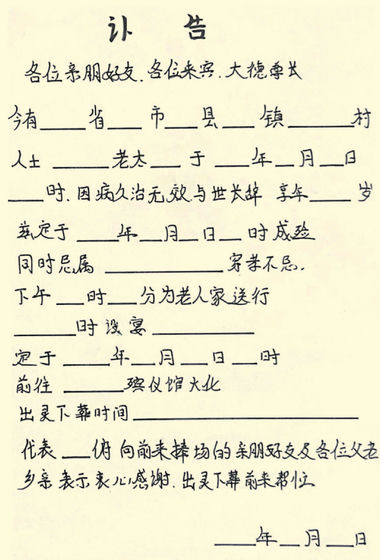 讣 告
各位亲朋好友.各位来宾.大德尊长
今有____省___市___县___镇______村
人士_____老太___于____年__月__日
___时.因病久治无效与世长辞 享年____岁
兹定于____年__月__日__时成殓
同时忌属__________穿孝不忌.
下午__时__分为老人家送行
_____时设宴_________
定于____年__月__日__时
前往____殡仪馆火化
出灵下葬时间__________________
代表__府向前来捧场的亲朋好友及各位父老
乡亲表示衷心感谢.出灵下葬前来帮忙
____年__月__日